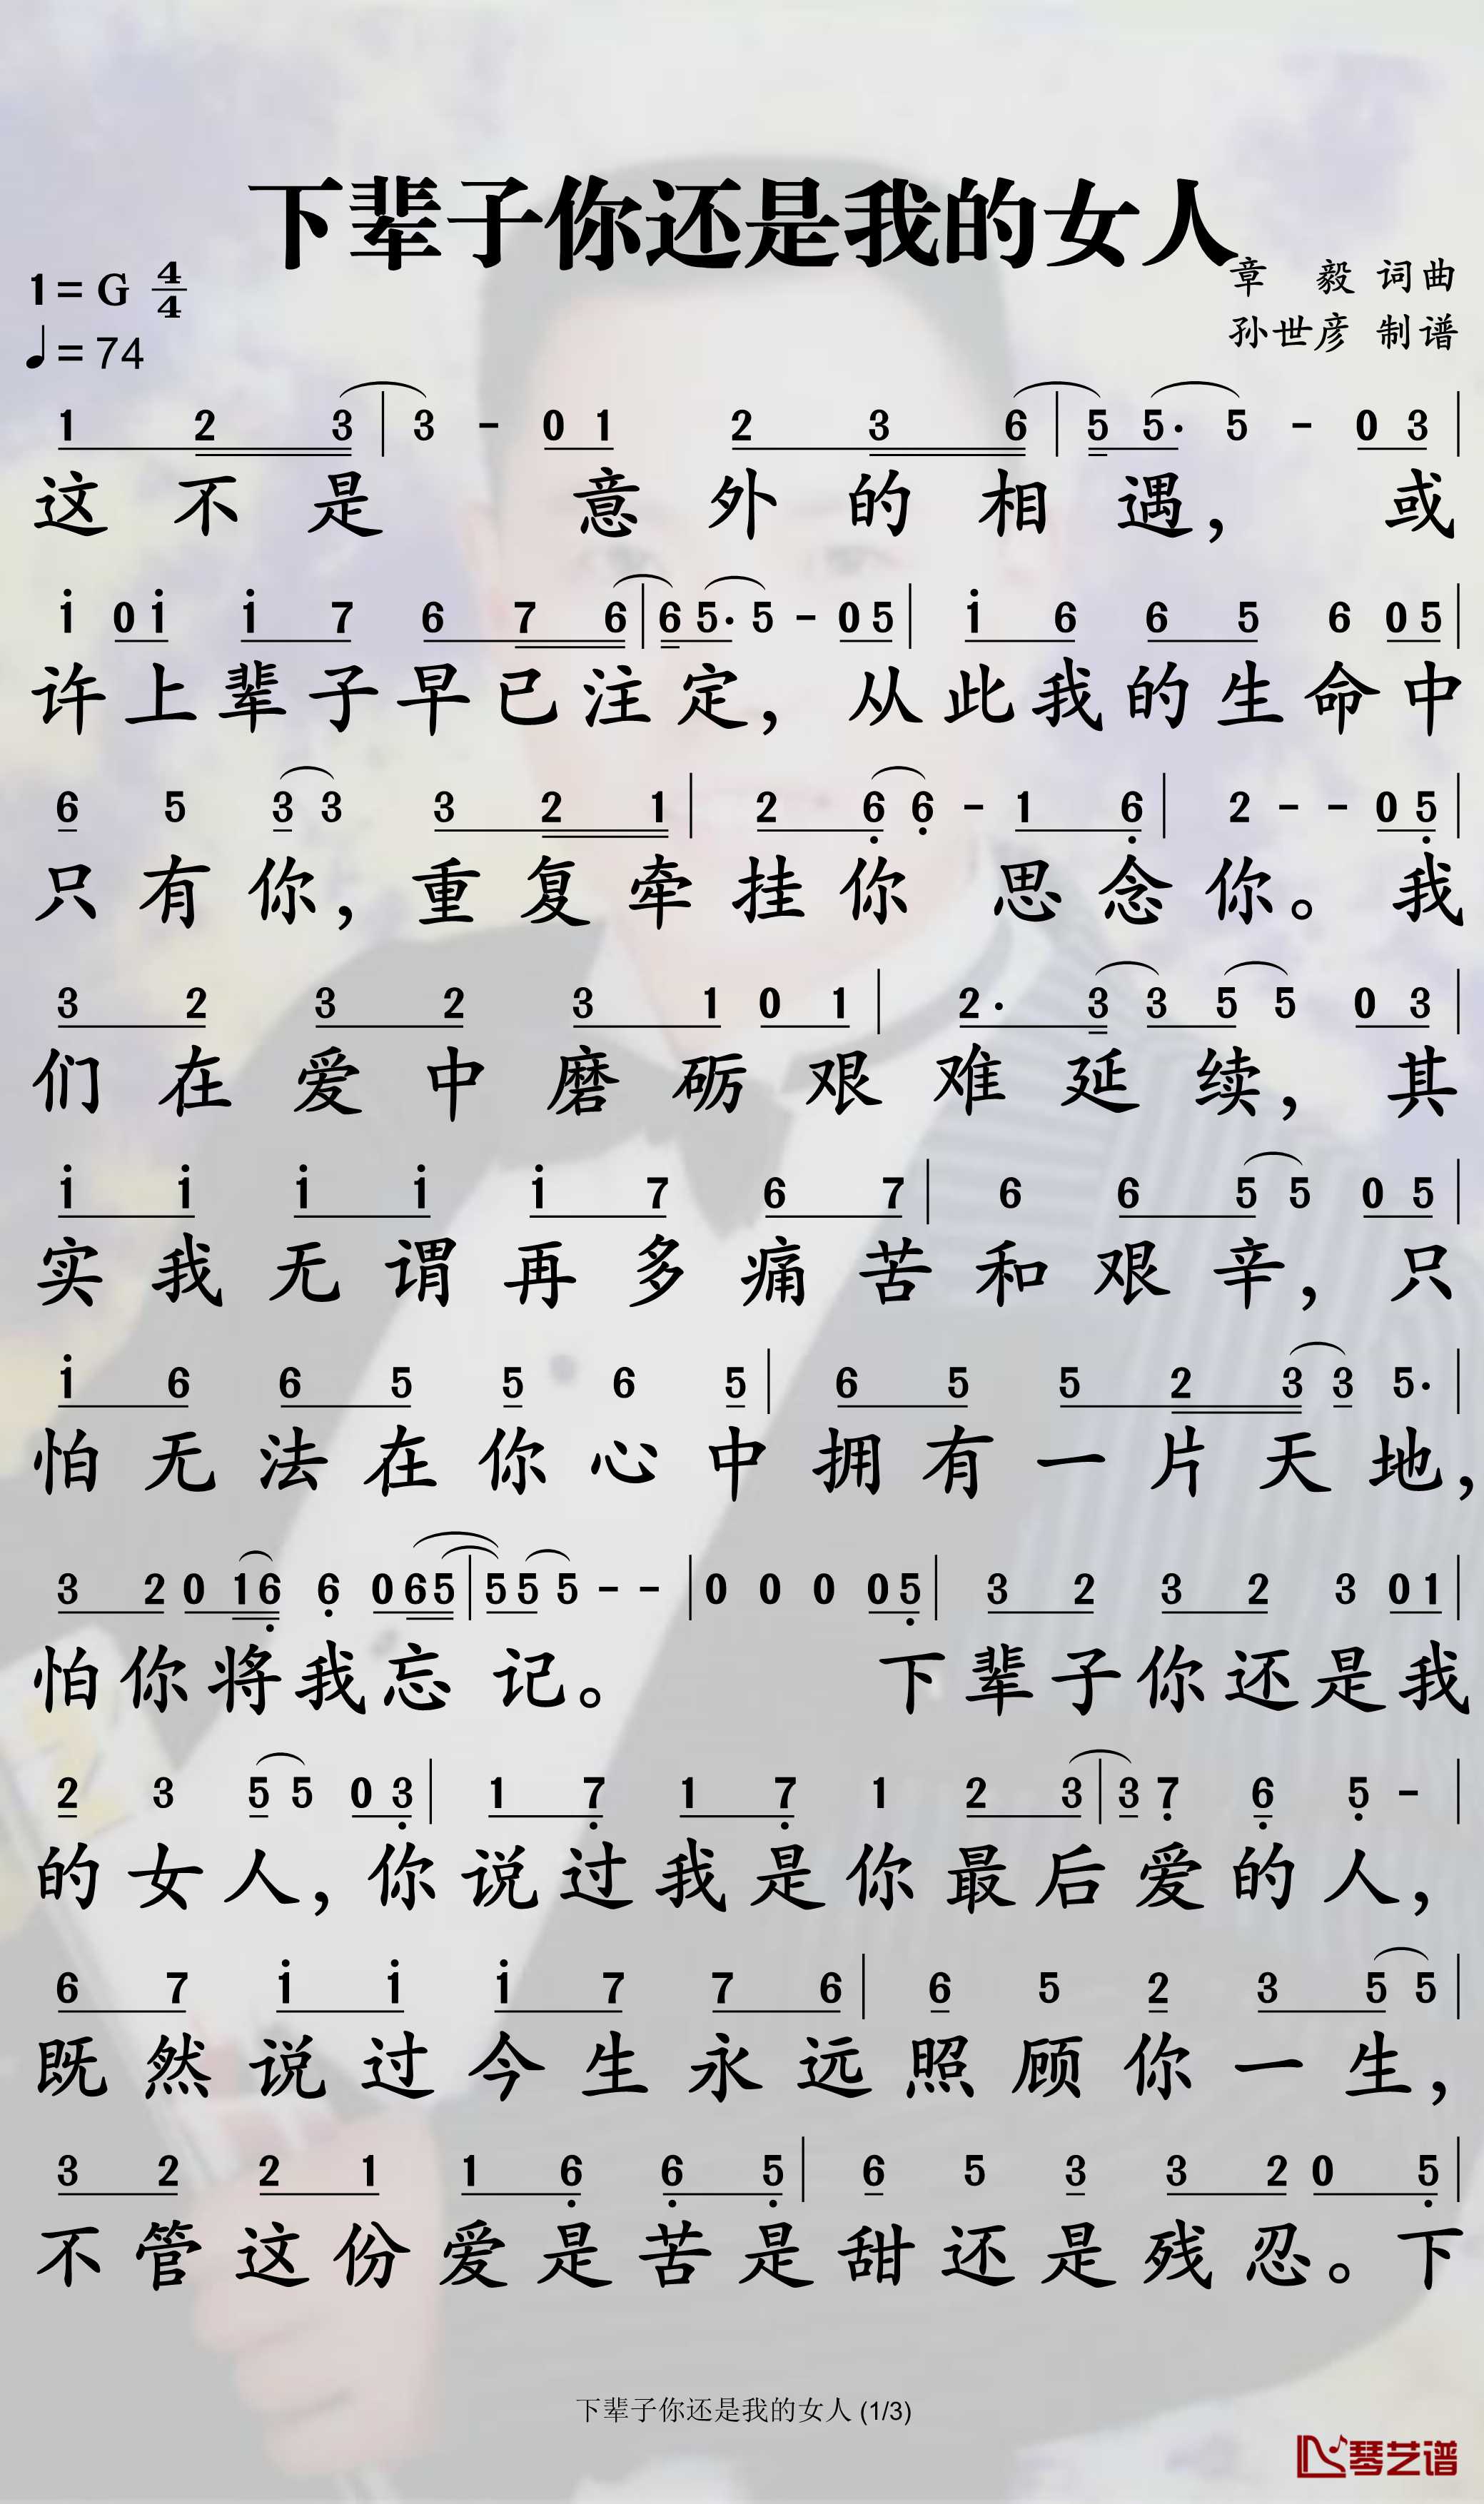 下辈子你还是我的女人
1=G 4/4
♩=74
章 毅 词曲
孙世彦 制谱
1 2 3 | 3 - 0 1 2 3 6 | 5 5· 5 - 0 3 |
这不是 意外的相遇， 或
i 0 i i 7 6 7 6 | 6 5· 5 - 0 5 | i 6 6 5 6 0 5 |
许上辈子早已注定， 从此我的生命中
6 5 3 3 3 2 1 | 2 6̣ 6̣ - 1 6̣ | 2 - - 0 5̣ |
只有你，重复牵挂你 思念你。我
3 2 3 2 3 1 0 1 | 2· 3 3 5 5 0 3 |
们在爱中磨砺艰难延续，其
i i i i i 7 6 7 | 6 6 5 5 0 5 |
实我无谓再多痛苦和艰辛，只
i 6 6 5 5 6 5 | 6 5 5 2 3 3 5· |
怕无法在你心中拥有一片天地，
3 2 0 1 6̣ 6̣ 0 6 5 | 5 5 5 - - | 0 0 0 0 5̣ | 3 2 3 2 3 0 1 |
怕你将我忘记。 下辈子你还是我
2 3 5 5 0 3̣ | 1 7̣ 1 7̣ 1 2 3 | 3 7̣ 6̣ 5̣ - |
的女人，你说过我是你最后爱的人，
6 7 i i i 7 7 6 | 6 5 2 3 5 5 |
既然说过今生永远照顾你一生，
3 2 2 1 1 6̣ 6̣ 5̣ | 6 5 3 3 2 0 5̣ |
不管这份爱是苦是甜还是残忍。下
下辈子你还是我的女人 (1/3)
琴艺谱